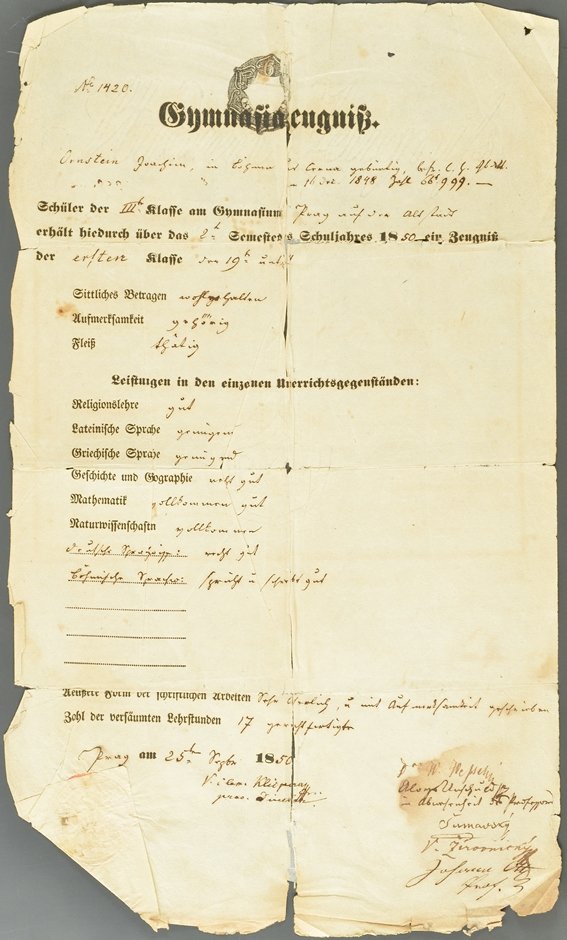 No 1420.
Gymnasialzeugniß.
Ornstein Joachim, in Böhmen gebürtig,
1848 Zahl 999.
Schüler der IIIt Klasse am Gymnasium Prag auf der Altstadt
erhält hiedurch über das 2te Semester Schuljahres 1850 ein Zeugniß
der ersten Klasse der 19te unter
Sittliches Betragen wohlgehalten
Aufmerksamkeit gehörig
Fleiß thätig
Leistungen in den einzelnen Unterrichtsgegenständen:
Religionslehre gut
Lateinische Sprache genügend
Griechische Sprache genügend
Geschichte und Geographie recht gut
Mathematik vollkommen gut
Naturwissenschaften vollkommen
deutsche recht gut
böhmische Sprache: spricht u schreibt gut
Aeußere Form der schriftlichen Arbeiten Sehr u mit Aufmerksamkeit geschrieben
Zahl der versäumten Lehrstunden 17 gerechtfertigte
Prag am 25ten Sept 1850
Klicpera
prov.
in Abwesenheit des Professors
Šumavský
Prof.